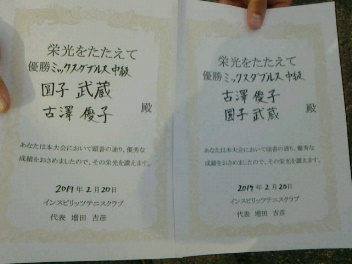 栄光をたたえて
優勝ミックスダブルス中級
園子 武蔵
古澤 優子 殿
あなたは本大会において頭書の通り、優秀な
成績をおさめましたので、その栄光を讃えます。
2019年2月20日
インスピリッツテニスクラブ
代表 増田 吉彦
栄光をたたえて
優勝ミックスダブルス中級
古澤 優子
園子 武蔵 殿
あなたは本大会において頭書の通り、優秀な
成績をおさめましたので、その栄光を讃えます。
2019年2月20日
インスピリッツテニスクラブ
代表 増田 吉彦